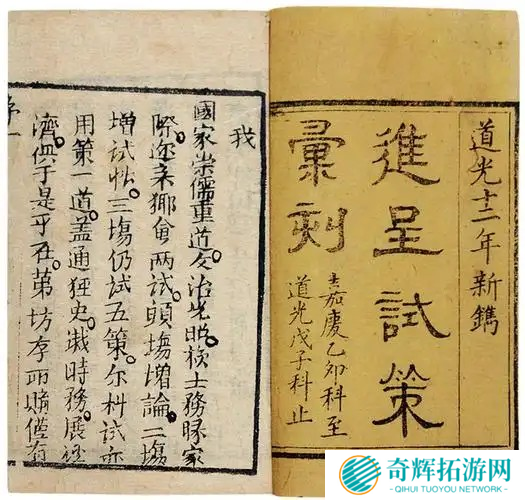 道光十二年新鐫
進呈試策
彙刻
嘉慶乙卯科至
道光戊子科止
我
國家崇儒重道文治光昭士務家
際。近来鄉會两試。頭塲增論。二塲
增試帖。三塲仍試五策。尔科試
用第一道。蓋通经史。裁時務。展经
濟。俱于是乎在。第坊所購僅有
序一
奇辉拓游网
QIHUI TUOYOU NETWORK